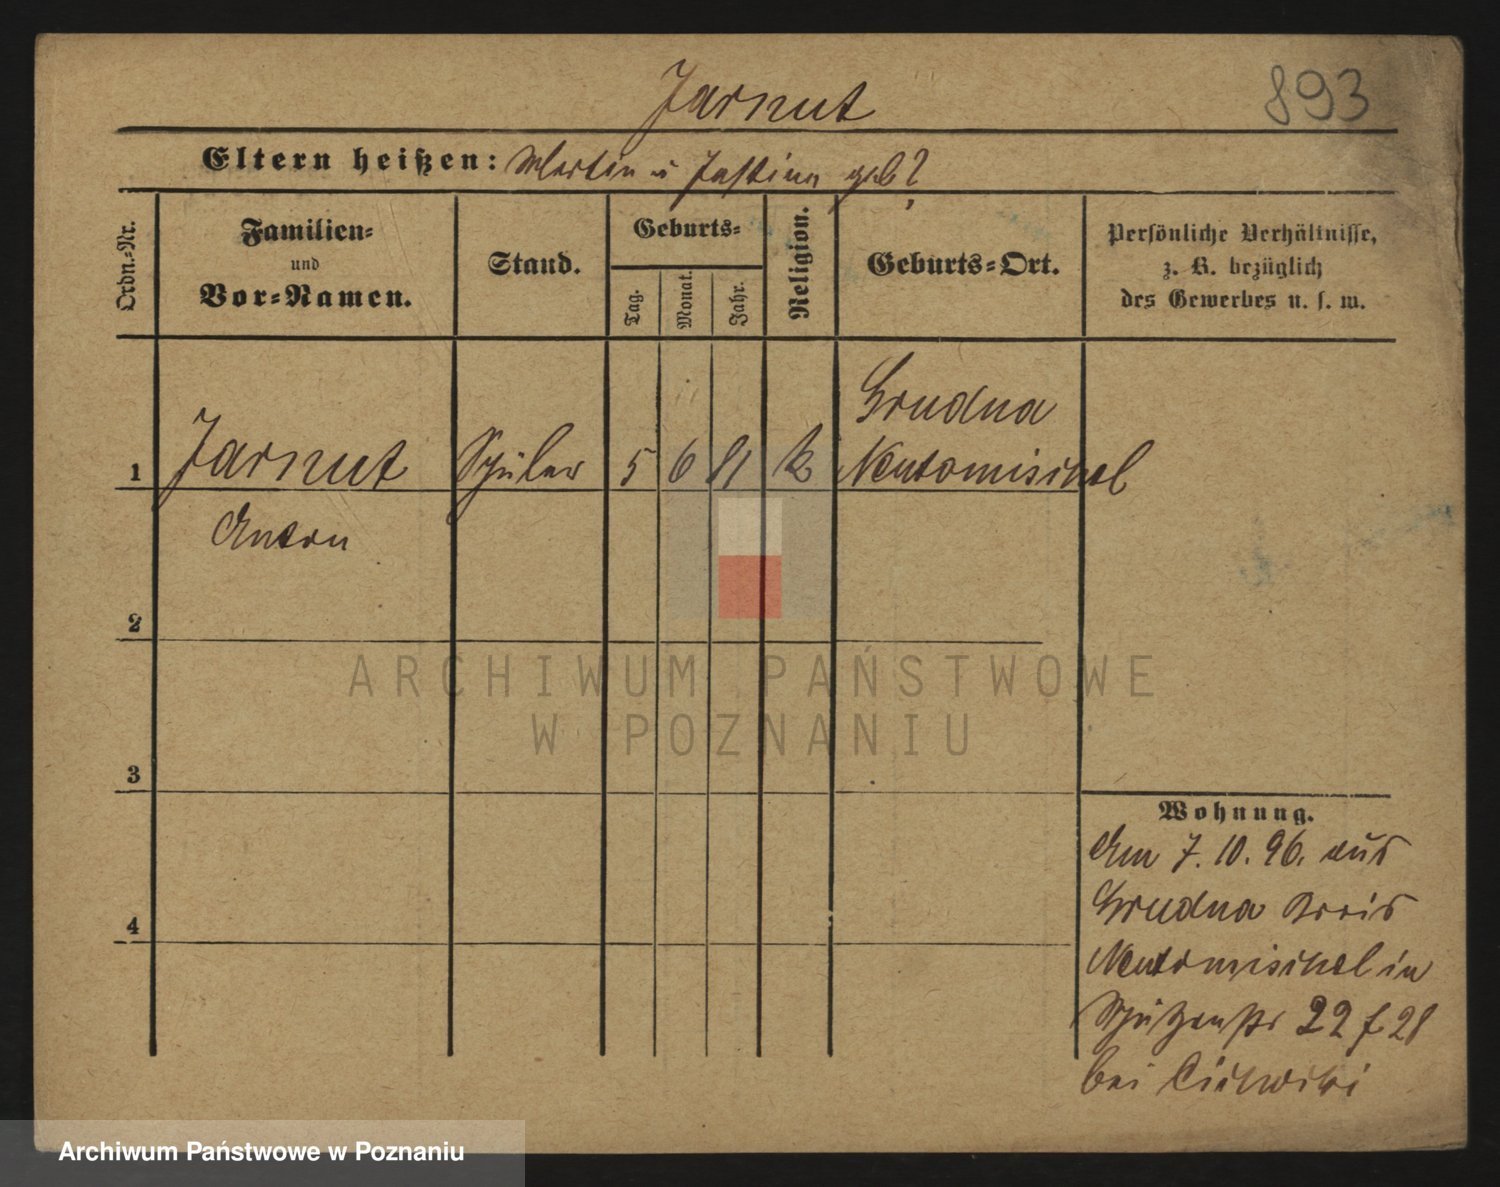 893
Jarnut
Eltern heißen: Martin u Justina geb?
Ordn.-Nr.
Familien-
und
Vor-Namen.
Stand.
Geburts-
Tag.
Monat.
Jahr.
Religion.
Geburts-Ort.
Persönliche Verhältnisse,
z. B. bezüglich
des Gewerbes u. s. w.
1 Jarnut Schüler 5 6 81 k Grudna
Neutomischel
Anton
2
3
4
Wohnung.
Am 7. 10. 96. aus
Grudna Kreis
Neutomischel in
Schützenstr 22 f 28
bei
ARCHIWUM PAŃSTWOWE
W POZNANIU
Archiwum Państwowe w Poznaniu